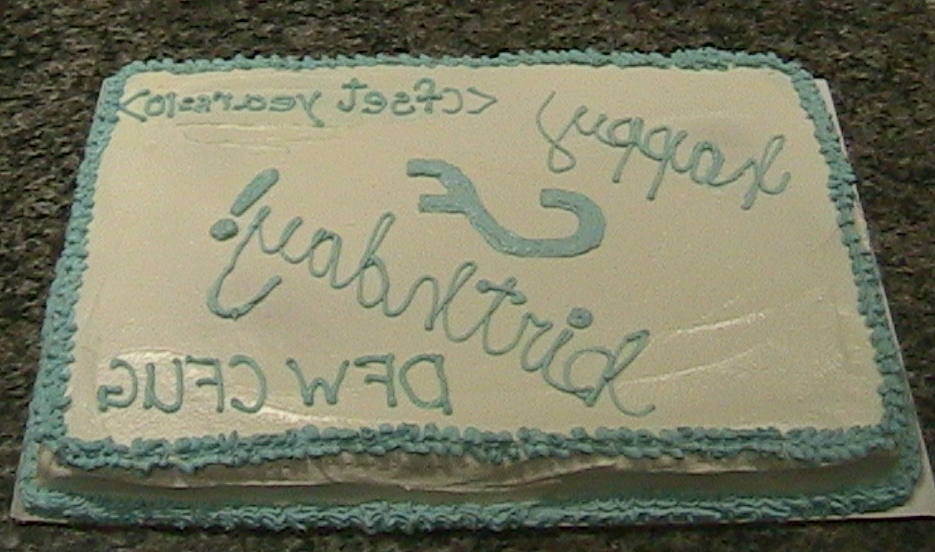 <cfset years=10>
Happy
CF
birthday!
DFW CFUG